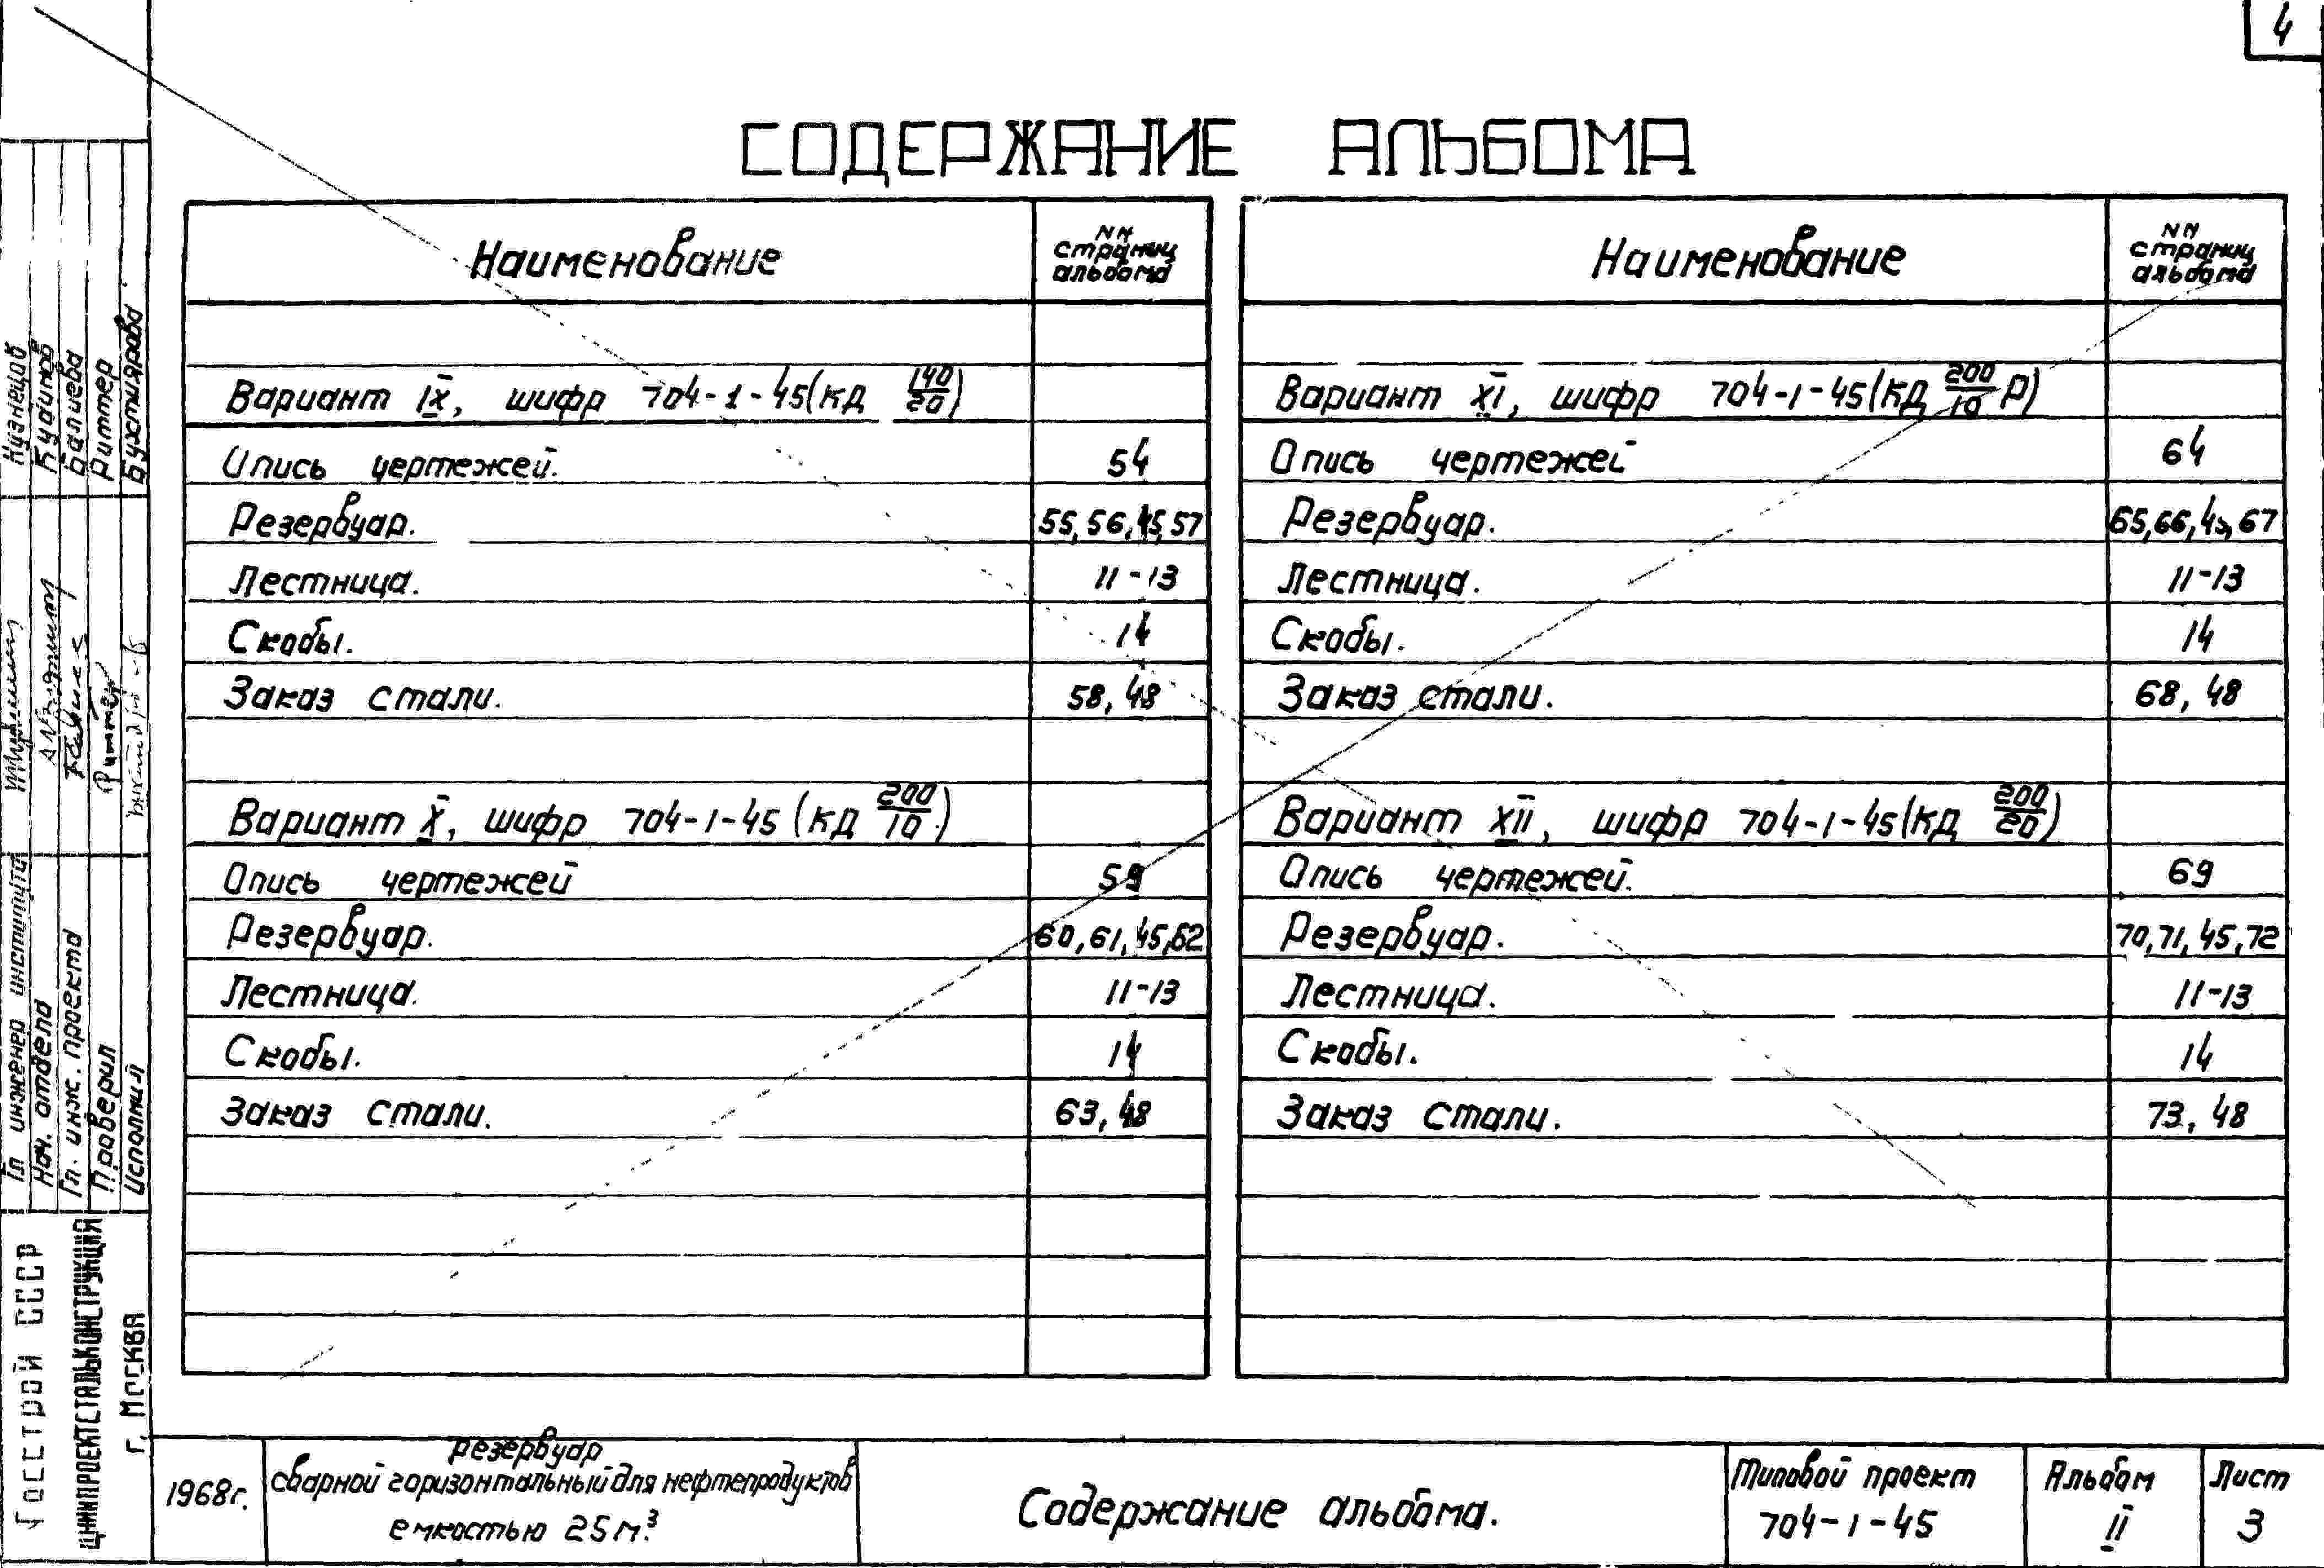 4
СОДЕРЖАНИЕ АЛЬБОМА
Наименование
NN
страниц
альбома
Вариант IX, шифр 704-1-45(КД 140/20)
Опись чертежей. 54
Резервуар. 55,56,45,57
Лестница. 11-13
Скобы. 14
Заказ стали. 58, 48
Вариант X, шифр 704-1-45 (КД 200/10)
Опись чертежей 59
Резервуар. 60,61,45,62
Лестница. 11-13
Скобы. 14
Заказ стали. 63, 48
Наименование
NN
страниц
альбома
Вариант XI, шифр 704-1-45(КД 200/10 Р)
Опись чертежей 64
Резервуар. 65,66,45,67
Лестница. 11-13
Скобы. 14
Заказ стали. 68, 48
Вариант XII, шифр 704-1-45(КД 200/20)
Опись чертежей. 69
Резервуар. 70,71,45,72
Лестница. 11-13
Скобы. 14
Заказ стали. 73, 48
Гл инженер института Кузнецов
Нач. отдела
Гл. инж. проекта
Проверил Риттер Риттер
Исполнил
Госстрой СССР
ЦНИИПРОЕКТСТАЛЬКОНСТРУКЦИЯ
г. Москва
1968г.
Резервуар
сварной горизонтальный для нефтепродуктов
емкостью 25м³
Содержание альбома.
Типовой проект
704-1-45
Альбом
II
Лист
3